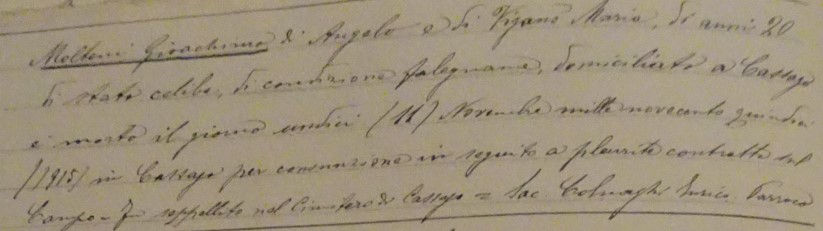 Molteni Gioachimo di Angelo e di Viganò Maria, di anni 20
di stato celibe, di condizione falegname, domiciliato a Cassago
è morto il giorno undici (11) Novembre mille novecento quindici
(1915) in Cassago per consunzione in seguito a pleurite contratta sul
Campo = Fu seppellito nel Cimitero di Cassago = Sac. Colnaghi Enrico Parroco